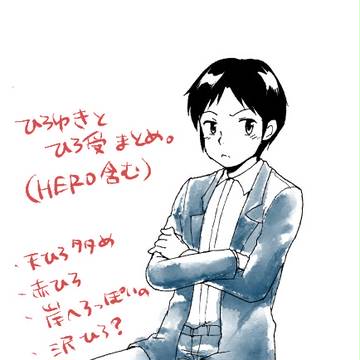 ひろゆきと
ひろ受まとめ。
(HERO含む)
・天ひろ多め
・赤ひろ
・岸へろっぽいの
・沢ひろ?